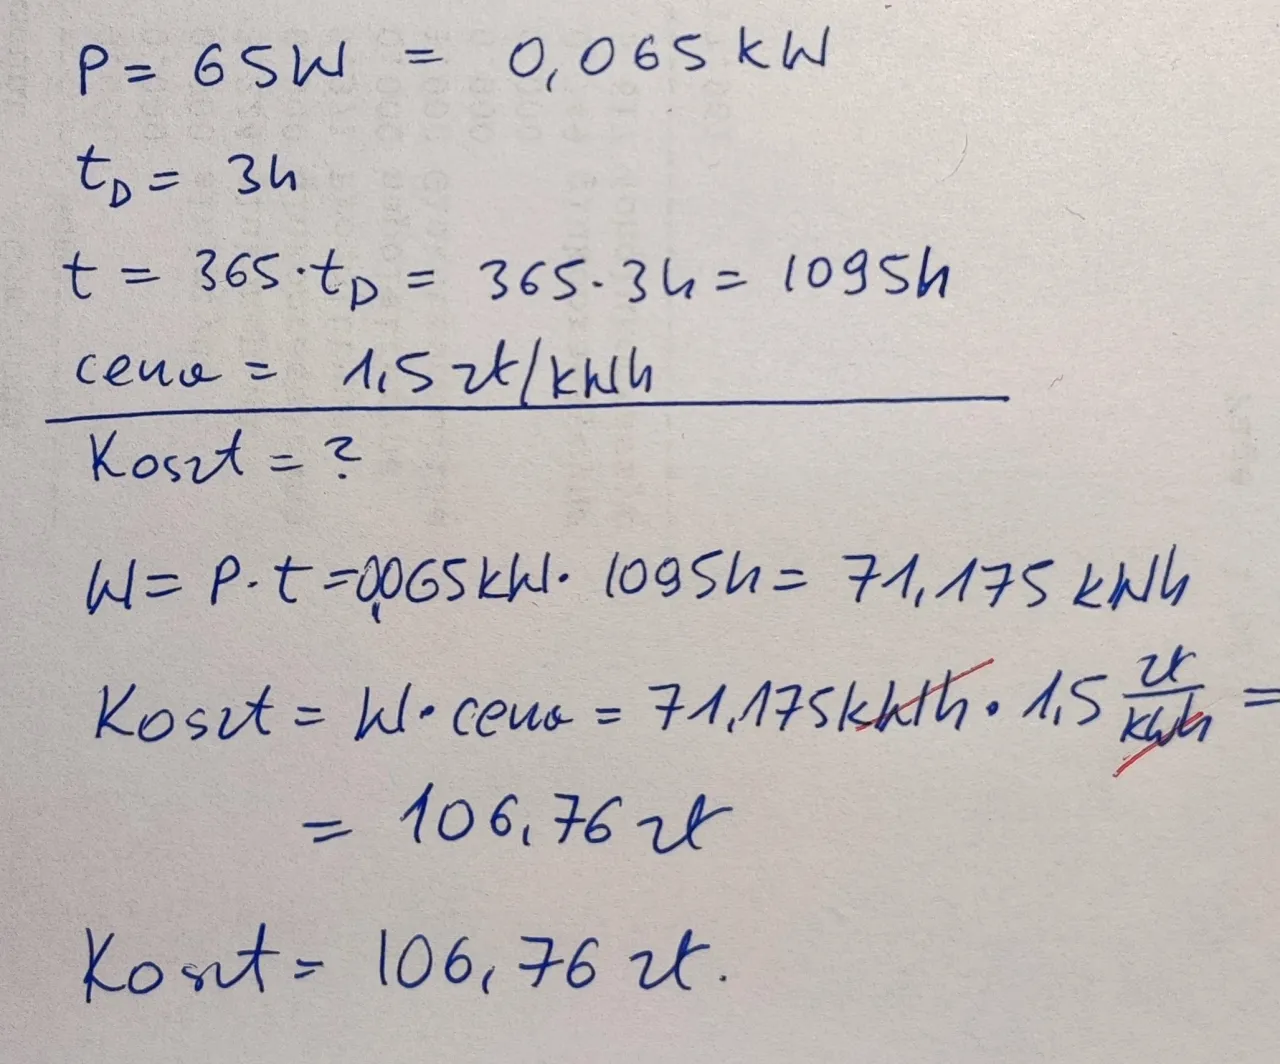 P = 65W = 0,065 kW
t_D = 3h
t = 365·t_D = 365·3h = 1095h
cena = 1,5 zł/kWh
Koszt = ?
W = P·t = 0,065kW·1095h = 71,175 kWh
Koszt = W·cena = 71,175kWh·1,5 zł/kWh =
= 106,76 zł
Koszt = 106,76 zł.